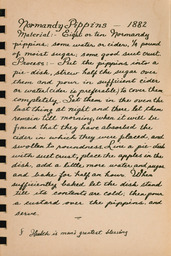 Normandy Pippins — 1882
Material:- Eight or ten Normandy
pippins, some water or cider, ½ pound
of moist sugar, some good suet crust.
Process:- Put the pippins into a
pie-dish, strew half the sugar over
them and pour in sufficient cider
or water (cider is preferable) to cover them
completely. Set them in the oven the
last thing at night and there let them
remain till morning, when it will be
found that they have absorbed the
cider in which they were placed, and
swollen to roundness. Line a pie-dish
with suet crust, place the apples in the
dish, add a little more water and sugar
and bake for half an hour. When
sufficiently baked let the dish stand
till its contents are cold, then pour
a custard over the pippins, and
serve.
Health is man's greatest blessing